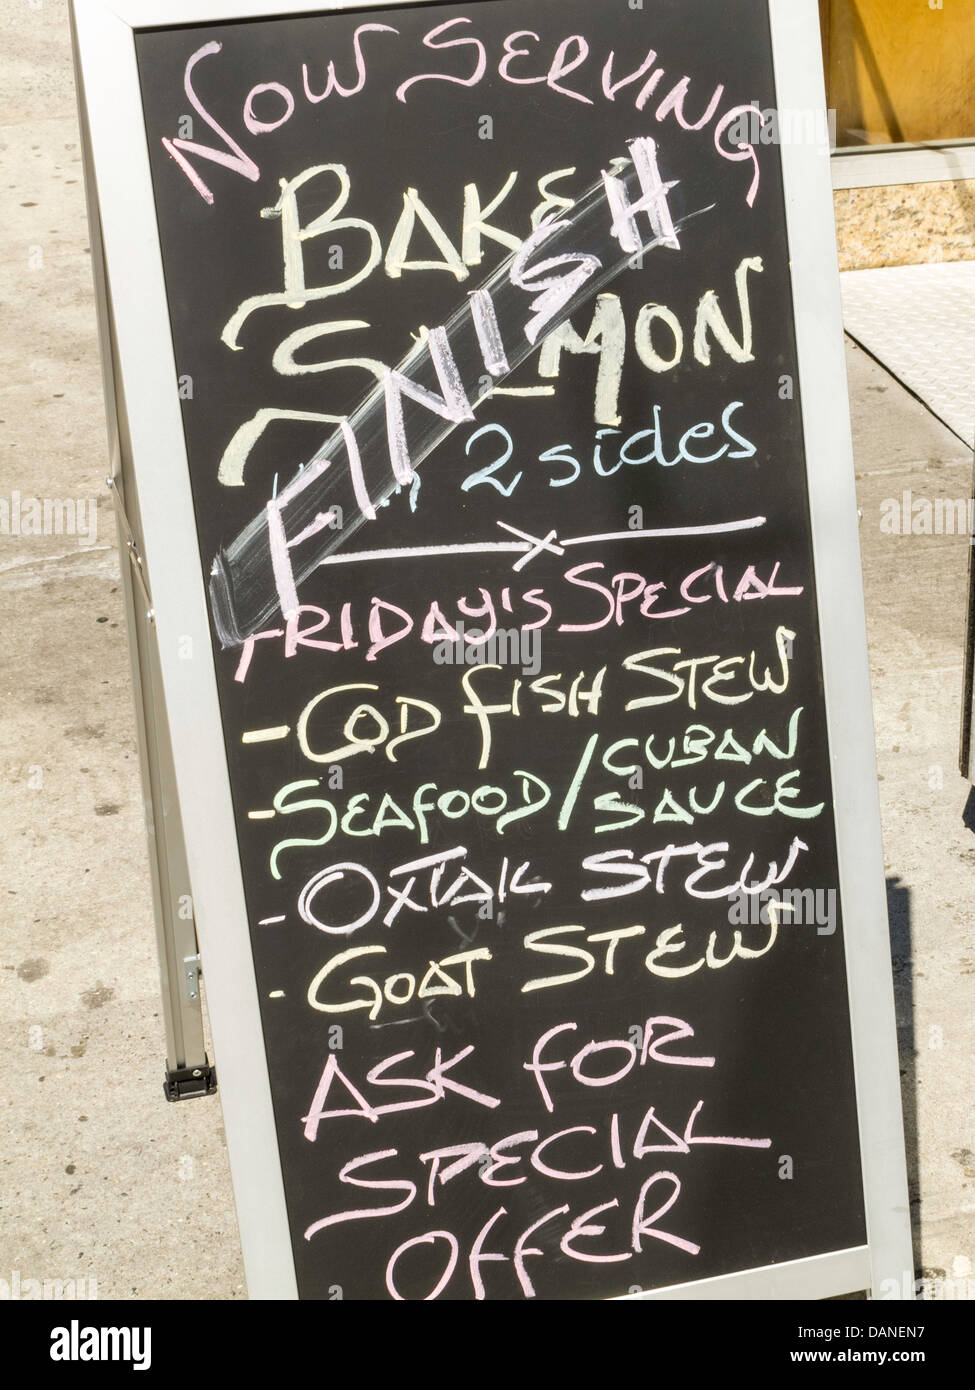 NOW SERVING
BAKE
SALMON
FINISH
2 sides
FRIDAY'S SPECIAL
- COD FISH STEW
- SEAFOOD / CUBAN SAUCE
- OXTAIL STEW
- GOAT STEW
ASK FOR
SPECIAL
OFFER
alamy
Image ID: DANEN7
www.alamy.com